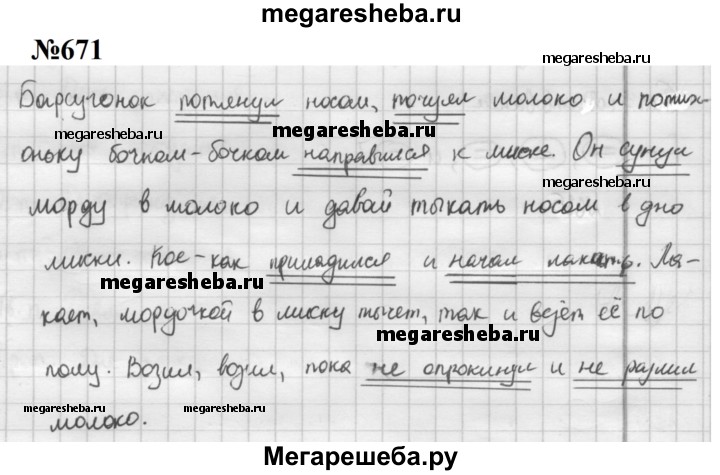 megaresheba.ru
№671
megaresheba.ru
Барсучонок потянул носом, почуял молоко и потих-
megaresheba.ru megaresheba.ru
оньку бочком-бочком направился к миске. Он сунул
megaresheba.ru
морду в молоко и давай тыкать носом в дно
миски. Кое-как приладился и начал лакать. Ла-
megaresheba.ru megaresheba.ru
кает, мордочкой в миску тычет, так и везёт её по
megaresheba.ru
полу. Возил, возил, пока не опрокинул и не разлил
megaresheba.ru megaresheba.ru megaresheba.ru
молоко.
Мегарешеба.ру